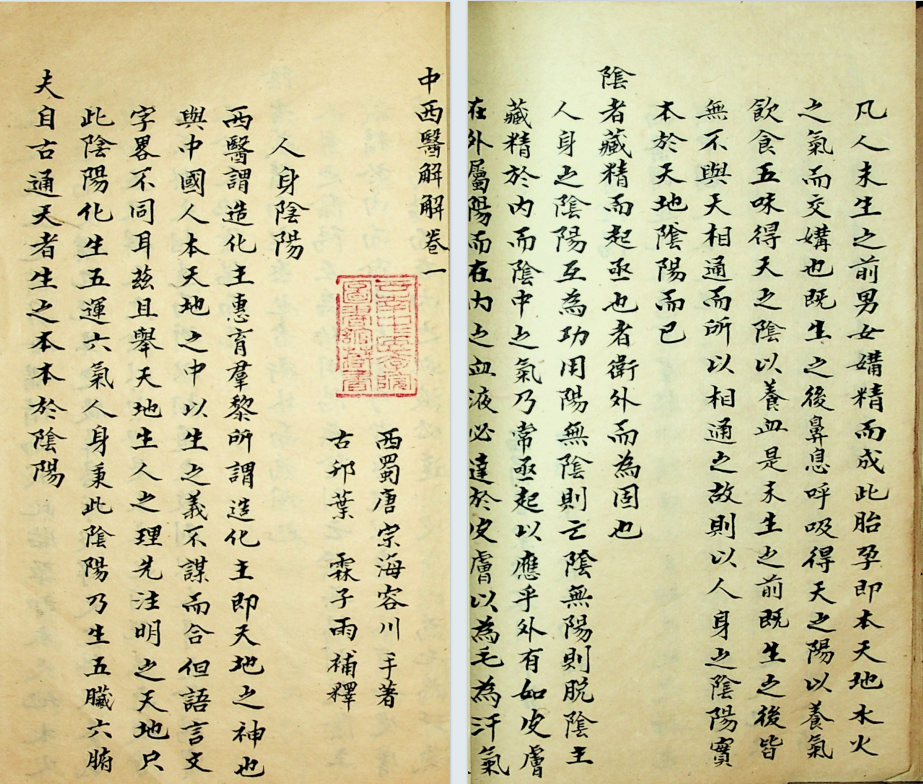 中西醫解解卷一
西蜀唐宗海容川手著
古邗葉 霖子雨補釋
人身陰陽
西醫謂造化主惠育羣黎所謂造化主即天地之神也
與中國人本天地之中以生之義不謀而合但語言文
字畧不同耳茲且舉天地生人之理先注明之天地只
此陰陽化生五運六氣人身秉此陰陽乃生五臟六腑
夫自古通天者生之本本於陰陽
凡人未生之前男女媾精而成此胎孕即本天地水火
之氣而交媾也既生之後鼻息呼吸得天之陽以養氣
飲食五味得天之陰以養血是未生之前既生之後皆
無不與天相通而所以相通之故則以人身之陰陽實
本於天地陰陽而已
陰者藏精而起亟也者衛外而為固也
人身之陰陽互為功用陽無陰則亡陰無陽則脫陰主
藏精於內而陰中之氣乃常亟起以應乎外有如皮膚
在外屬陽而在內之血液必達於皮膚以為毛為汗氣